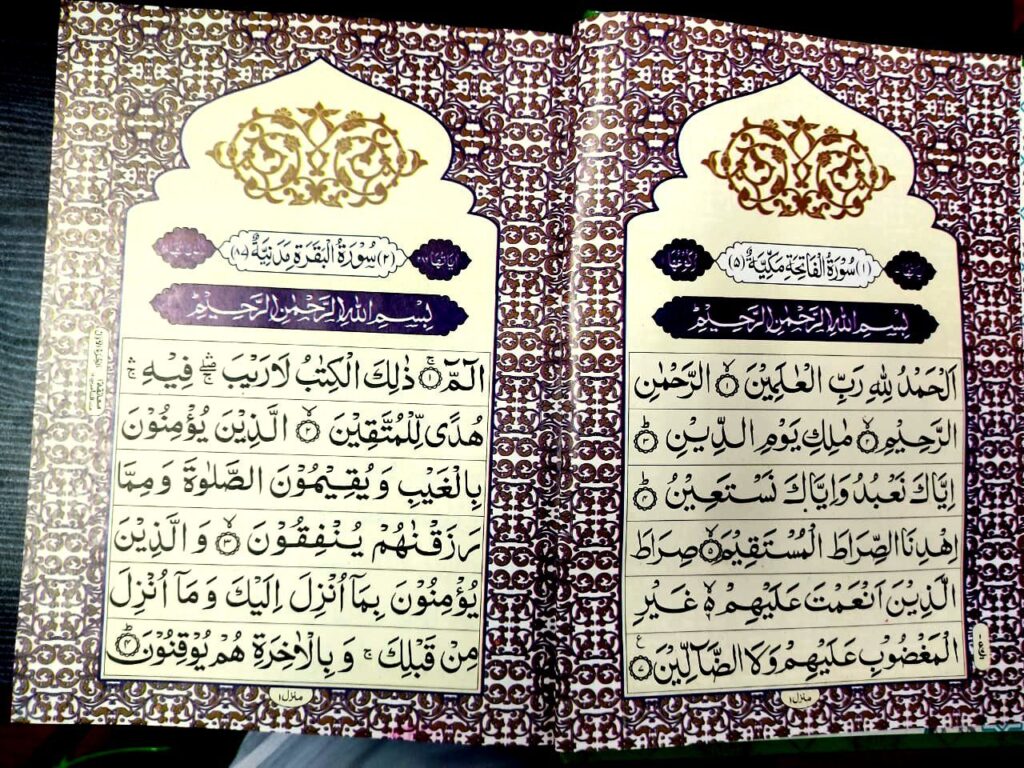 (١) سُوْرَةُ الْفَاتِحَةِ مَكِّيَّةٌ (٥)
بِسْمِ اللهِ الرَّحْمٰنِ الرَّحِيْمِ
اَلْحَمْدُ لِلهِ رَبِّ الْعٰلَمِيْنَ ۙ﴿۱﴾ الرَّحْمٰنِ
الرَّحِيْمِ ۙ﴿۲﴾ مٰلِكِ يَوْمِ الدِّيْنِ ؕ﴿۳﴾
اِيَّاكَ نَعْبُدُ وَاِيَّاكَ نَسْتَعِيْنُ ؕ﴿۴﴾
اِهْدِنَا الصِّرَاطَ الْمُسْتَقِيْمَ ۙ﴿۵﴾ صِرَاطَ
الَّذِيْنَ اَنْعَمْتَ عَلَيْهِمْ ۙ۬ غَيْرِ
الْمَغْضُوْبِ عَلَيْهِمْ وَلَا الضَّآلِّيْنَ
منزل ١
(٢) سُوْرَةُ الْبَقَرَةِ مَدَنِيَّةٌ (٨٧)
بِسْمِ اللهِ الرَّحْمٰنِ الرَّحِيْمِ
الٓمّٓ ۚ﴿۱﴾ ذٰلِكَ الْكِتٰبُ لَا رَيْبَ ۛۖۚ فِيْهِ ۛۚ
هُدًى لِّلْمُتَّقِيْنَ ۙ﴿۲﴾ الَّذِيْنَ يُؤْمِنُوْنَ
بِالْغَيْبِ وَ يُقِيْمُوْنَ الصَّلٰوةَ وَمِمَّا
رَزَقْنٰهُمْ يُنْفِقُوْنَ ۙ﴿۳﴾ وَ الَّذِيْنَ
يُؤْمِنُوْنَ بِمَاۤ اُنْزِلَ اِلَيْكَ وَ مَاۤ اُنْزِلَ
مِنْ قَبْلِكَ ۚ وَ بِالْاٰخِرَةِ هُمْ يُوْقِنُوْنَ ؕ﴿۴﴾
منزل ١